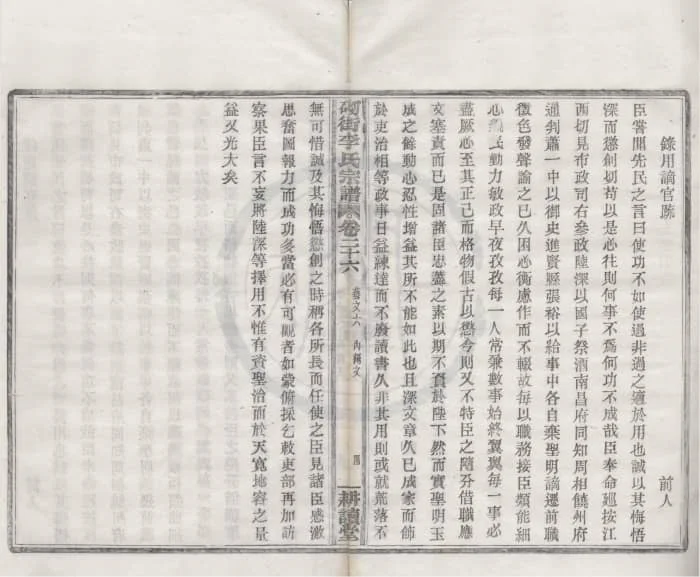 錄用謫官疏 前人
臣嘗聞先民之言曰使功不如使過非過之適於用也誠以其悔悟
深而懲創切苟以是心往則何事不爲何功不成哉臣奉命廵按江
西切見布政司右參政陸深以國子祭酒南昌府同知周相饒州府
通判蕭一中以御史進賢縣張裕以給事中各自棄聖明謫遷前職
徵色發聲諭之已久困心衡慮作而不輟故每以職務接臣類能細
心 動力敏政早夜孜孜每一人常兼數事始終翼翼每一事必
盡厥心至其正己而格物假古以懲今則又不特臣之隨分借職應
文塞責而已是固諸臣忠藎之素以期不負於陛下然而實聖明玉
成之餘動心忍性增益其所不能如此也且深文章久已成家而飾
於吏治相等政事日益練達而不廢讀書久非其用則或就荒落不
砌街李氏宗譜 卷二十六 藝文十八 內編文 四 耕讀堂
無可惜誠及其悔悟懲創之時稱各所長而任使之臣見諸臣感激
思奮圖報力而成功多當必有可觀者如蒙俯採乞敕吏部再加訪
察果臣言不妄將陸深等擇用不惟有資聖治而於天寬地容之量
益又光大矣